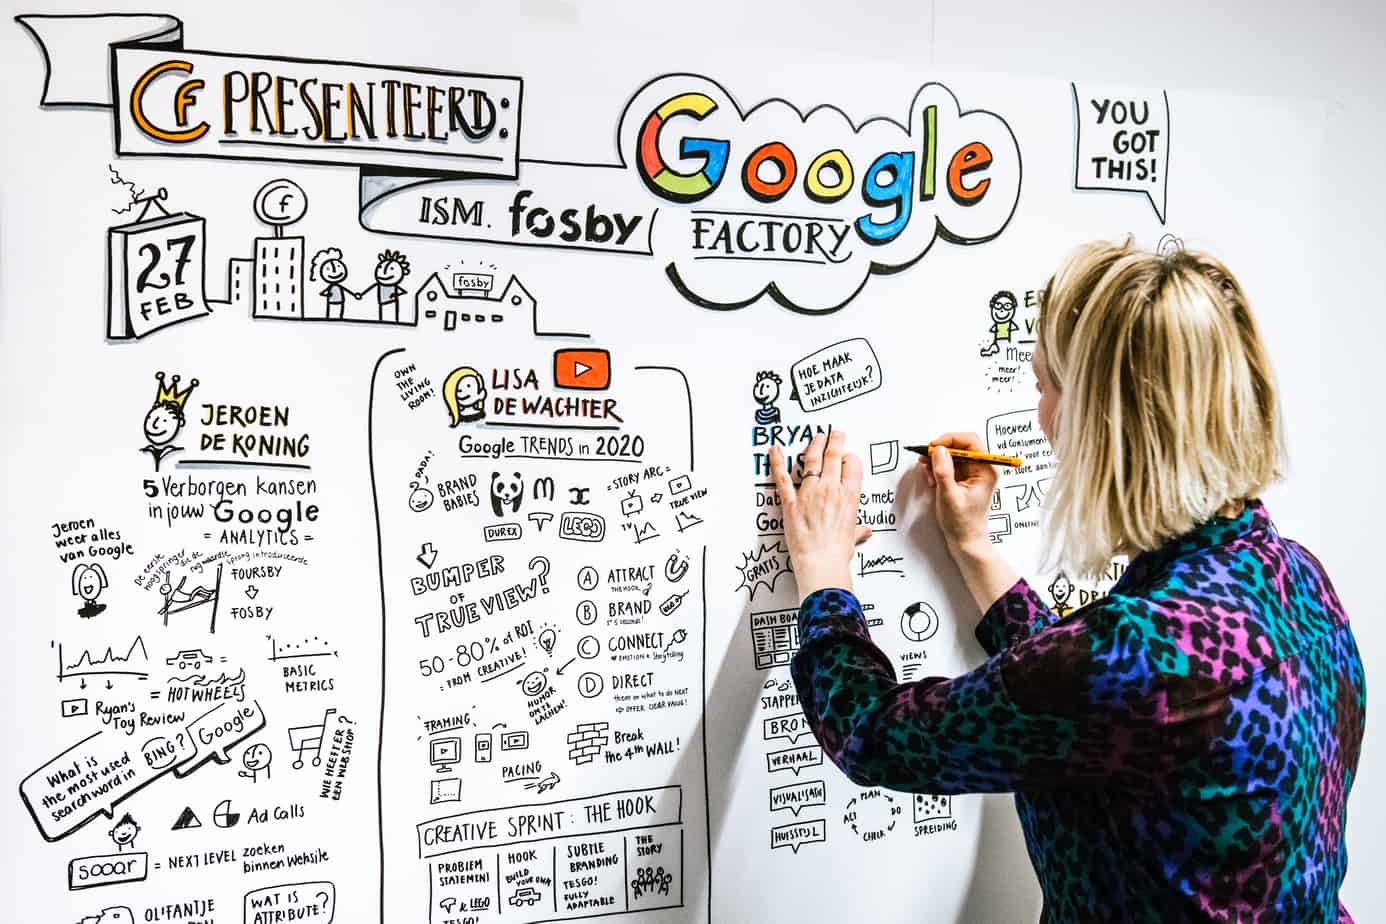 Cf PRESENTEERD:
ISM. fosby
Google
FACTORY
YOU
GOT
THIS!
27
FEB
Cf
fosby
JEROEN
DE KONING
5 Verborgen kansen
in jouw Google
= ANALYTICS =
Jeroen
weet alles
van Google
De eerste
hoogspringer die de
rugwaardse sprong introduceerde
FOURSBY
FOSBY
= HOT WHEELS
BASIC
METRICS
Ryan's
Toy Review
What is
the most used
searchword in BING?
Google
WIE HEEFT ER
EEN WEBSHOP?
Ad Calls
sooqr = NEXT LEVEL zoeken
binnen Website
OLIFANTJE
WAT IS
ATTRIBUTE?
OWN
THE
LIVING
ROOM!
LISA
DE WACHTER
Google TRENDS in 2020
DADA!
BRAND
BABIES
DUREX
T
LEGO
= STORY ARC =
TV
TRUE VIEW
BUMPER
OF
TRUEVIEW?
50-80% of ROI
= FROM CREATIVE!
HUMOR
OM TE
LACHEN!
A ATTRACT
THE HOOK
B BRAND
5 seconds!
C CONNECT
EMOTION & Storytelling
D DIRECT
them on what to do NEXT
OFFER CLEAR VALUE!
FRAMING
PACING
Break
the 4th WALL!
CREATIVE SPRINT: THE HOOK
PROBLEM
STATEMENT
& LEGO
TESGO!
HOOK
BUILD
YOUR OWN
SUBTLE
BRANDING
TESGO!
FULLY
ADAPTABLE
THE
STORY
HOE MAAK
JE DATA
INZICHTELIJK?
BRYAN
THIS
Dat
e met
Goo
Studio
GRATIS
DASH BOA
VIEWS
STAPPE
BRON
VERHAAL
VISUALISATIE
HUISSTIJL
PLAN
DO
CHECK
ACT
SPREIDING
ER
VO
Mee
meer!
meer!
Hoeveel
vd Consument
voor ee
in-store aank
ONLINE
MARTI
DRI